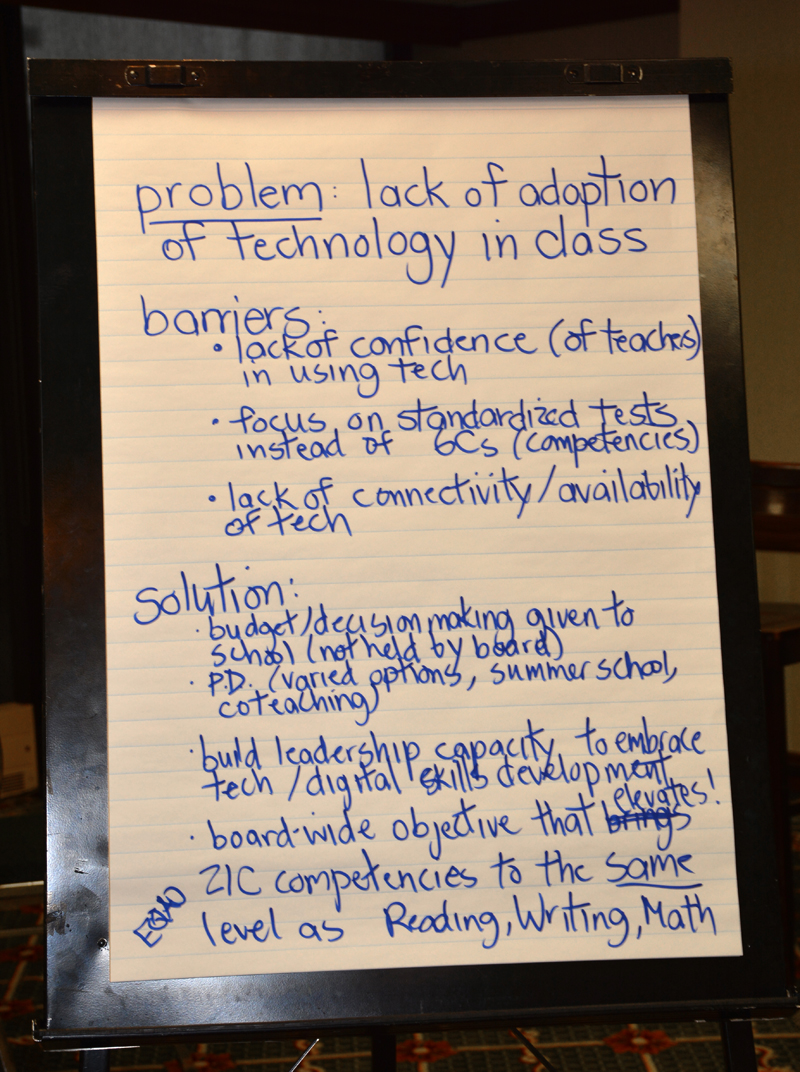 problem: lack of adoption
of technology in class
barriers:
• lack of confidence (of teachers)
in using tech
• focus on standardized tests
instead of 6Cs (competencies)
• lack of connectivity/availability
of tech
Solution:
· budget/decision making given to
school (not held by board)
· P.D. (varied options, summer school,
coteaching)
· build leadership capacity to embrace
tech/digital skills development
elevates!
· board-wide objective that brings
21C competencies to the same
level as Reading, Writing, Math